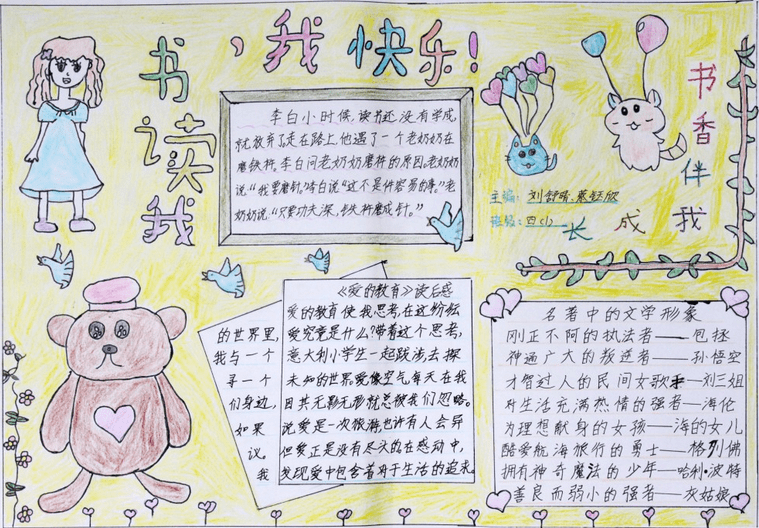 我读书，我快乐！
李白小时候，读书还没有学成，
就放弃了，走在路上，他遇了一个老奶奶在
磨铁杵。李白问老奶奶磨杵的原因，老奶奶
说“我要磨针。”李白说“这不是件容易的事。”老
奶奶说：“只要功夫深，铁杵磨成针。”
书香伴我
成长
主编：刘舒晴、
班级：四(1)
《爱的教育》读后感
爱的教育使我思考，在这纷纭
爱究竟是什么？带着这个思考，
意大利小学生一起跋涉去探
未知的世界爱像空气，每天在我
因其无影无形就总被我们忽略。
说爱是一次旅游，也许有人会异
但爱正是没有尽头的，在感动中，
发现爱中包含着对于生活的追求
的世界里，
我与一个
寻一个
们身边，
如果
议。
我
名著中的文学形象
刚正不阿的执法者——包拯
神通广大的叛逆者——孙悟空
才智过人的民间女歌手—刘三姐
对生活充满热情的强者—海伦
为理想献身的女孩—海的女儿
酷爱航海旅行的勇士—格列佛
拥有神奇魔法的少年—哈利·波特
善良而弱小的强者—灰姑娘